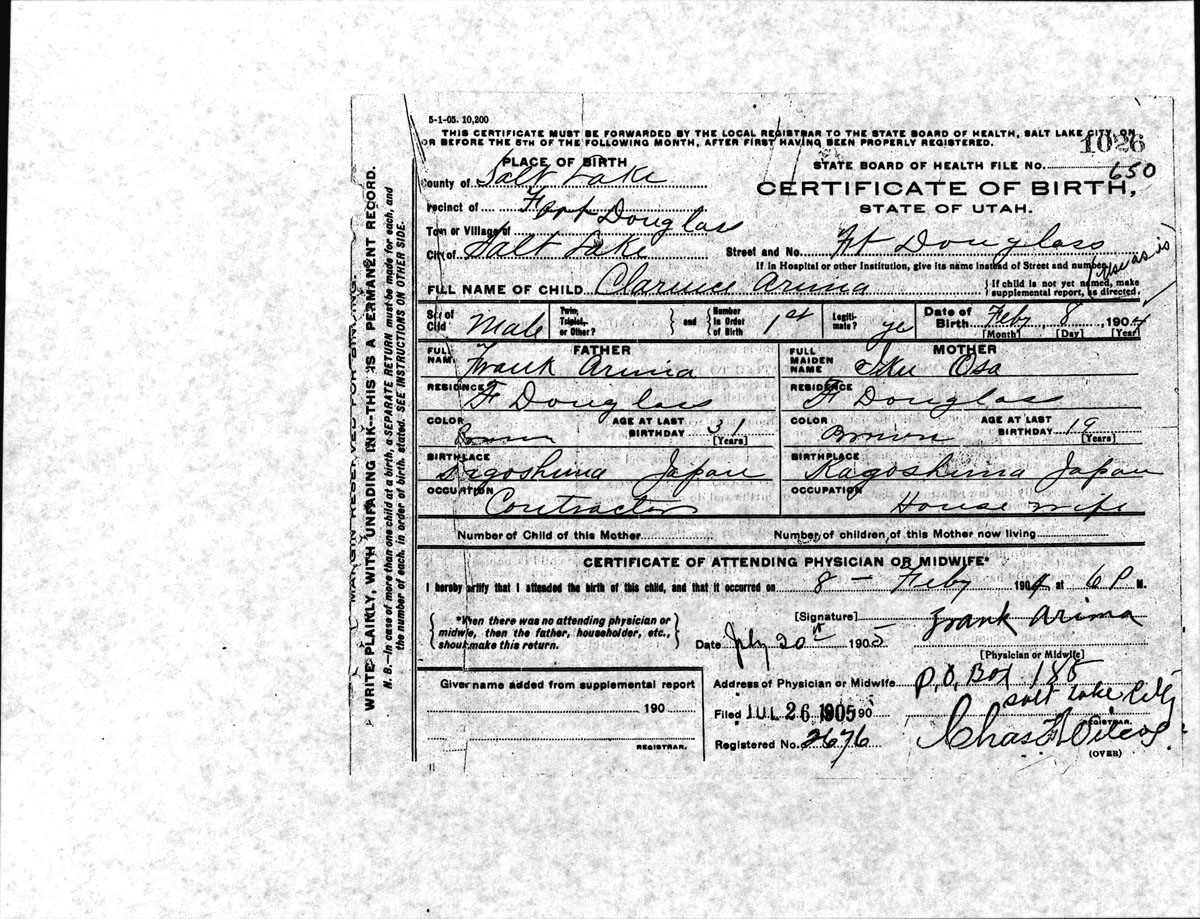 5-1-05. 10,200
THIS CERTIFICATE MUST BE FORWARDED BY THE LOCAL REGISTRAR TO THE STATE BOARD OF HEALTH, SALT LAKE CITY, ON
OR BEFORE THE 5TH OF THE FOLLOWING MONTH, AFTER FIRST HAVING BEEN PROPERLY REGISTERED.
1026
PLACE OF BIRTH
STATE BOARD OF HEALTH FILE NO. 650
County of Salt Lake
CERTIFICATE OF BIRTH,
STATE OF UTAH.
recinct of Fort Douglas
Town or Village of
City of Salt Lake
Street and No. Ft Douglass
If in Hospital or other Institution, give its name instead of Street and number.
use as is
FULL NAME OF CHILD Clarence Arima
If child is not yet named, make supplemental report, as directed.
Sex of Child Male
Twin, Triplet, or Other?
and
Number in Order of Birth 1st
Legiti-mate? ye
Date of Birth Feby 8 1904
[Month] [Day] [Year]
FATHER
FULL NAME Frank Arima
MOTHER
FULL MAIDEN NAME Iku Osa
RESIDENCE F Douglass
RESIDENCE F Douglass
COLOR
AGE AT LAST BIRTHDAY 31
[Years]
COLOR Brown
AGE AT LAST BIRTHDAY 19
[Years]
BIRTHPLACE Japan
BIRTHPLACE Kagoshima Japan
OCCUPATION Contractor
OCCUPATION House wife
Number of Child of this Mother
Number of children, of this Mother now living
CERTIFICATE OF ATTENDING PHYSICIAN OR MIDWIFE*
I hereby certify that I attended the birth of this child, and that it occurred on 8 - Feby 1904 at 6 P M.
*When there was no attending physician or
midwife, then the father, householder, etc.,
should make this return.
[Signature] Frank Arima
Date July 20th 1905
[Physician or Midwife]
Given name added from supplemental report
190
REGISTRAR.
Address of Physician or Midwife P.O. Box 188
Salt Lake City
Filed JUL 26 1905 190
Registered No. 2676
Chas F Wilcox
REGISTRAR.
(OVER)
MARGIN RESERVED FOR BINDING.
WRITE PLAINLY, WITH UNFADING INK--THIS IS A PERMANENT RECORD.
N. B.--In case of more than one child at a birth, a SEPARATE RETURN must be made for each, and
the number of each, in order of birth, stated. SEE INSTRUCTIONS ON OTHER SIDE.